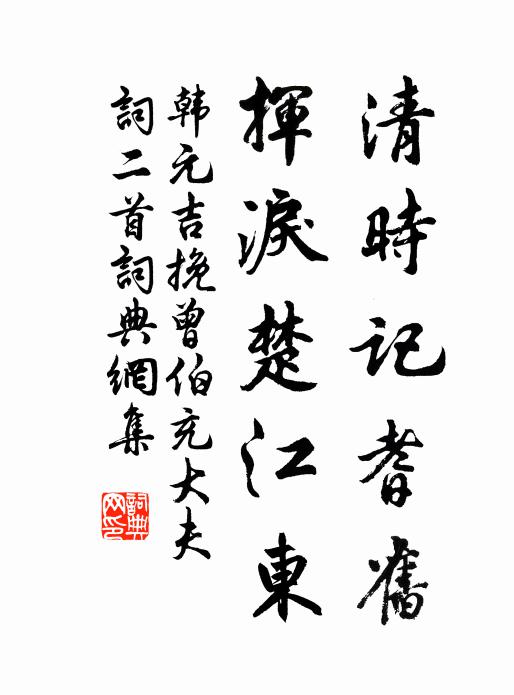 清時記耆舊
揮淚楚江東
韩元吉挽曾伯充大夫
詞二首詞典網集
詞典网印